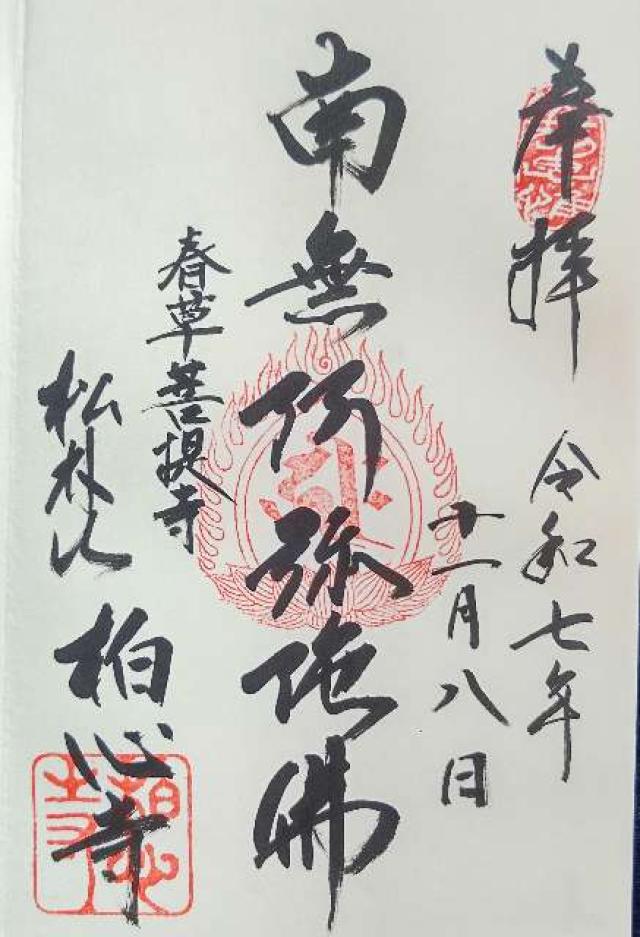 奉拝
令和七年
十一月八日
南無阿弥陀佛
春草菩提寺
松林山
柏心寺
柏心寺